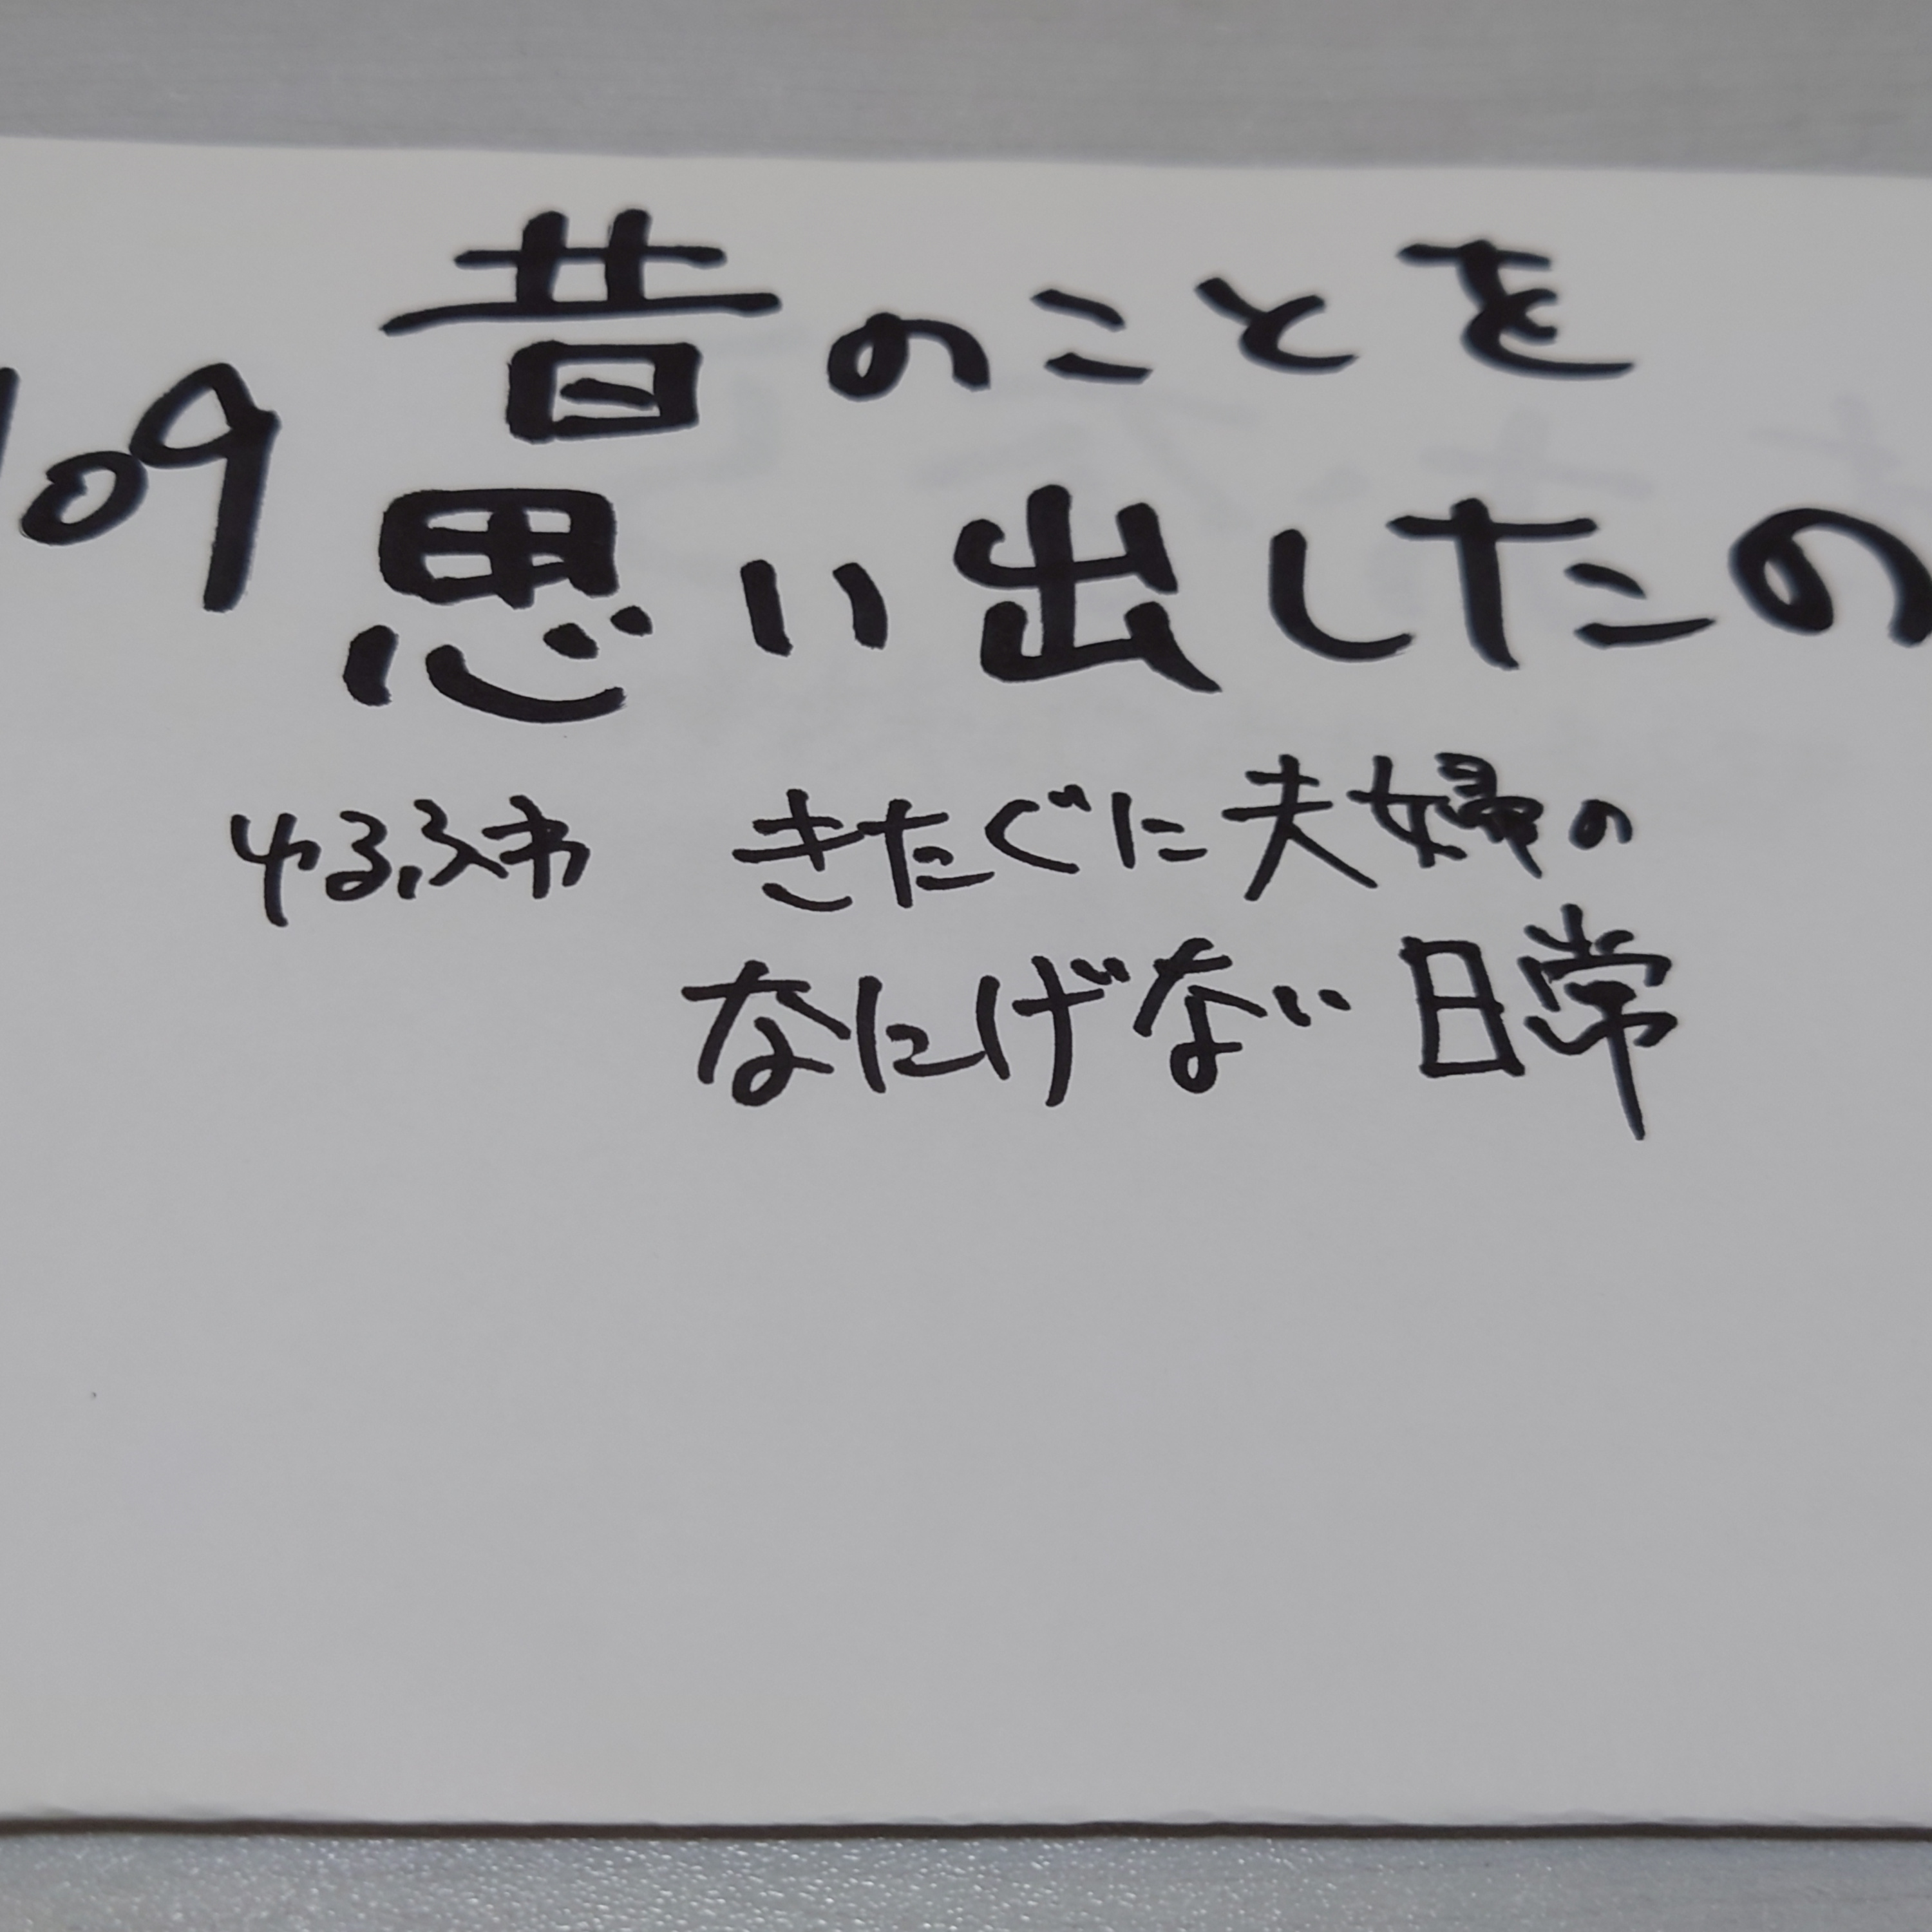 109
昔のことを
思い出したの
ゆるふわ きたぐに夫婦の
なにげない日常